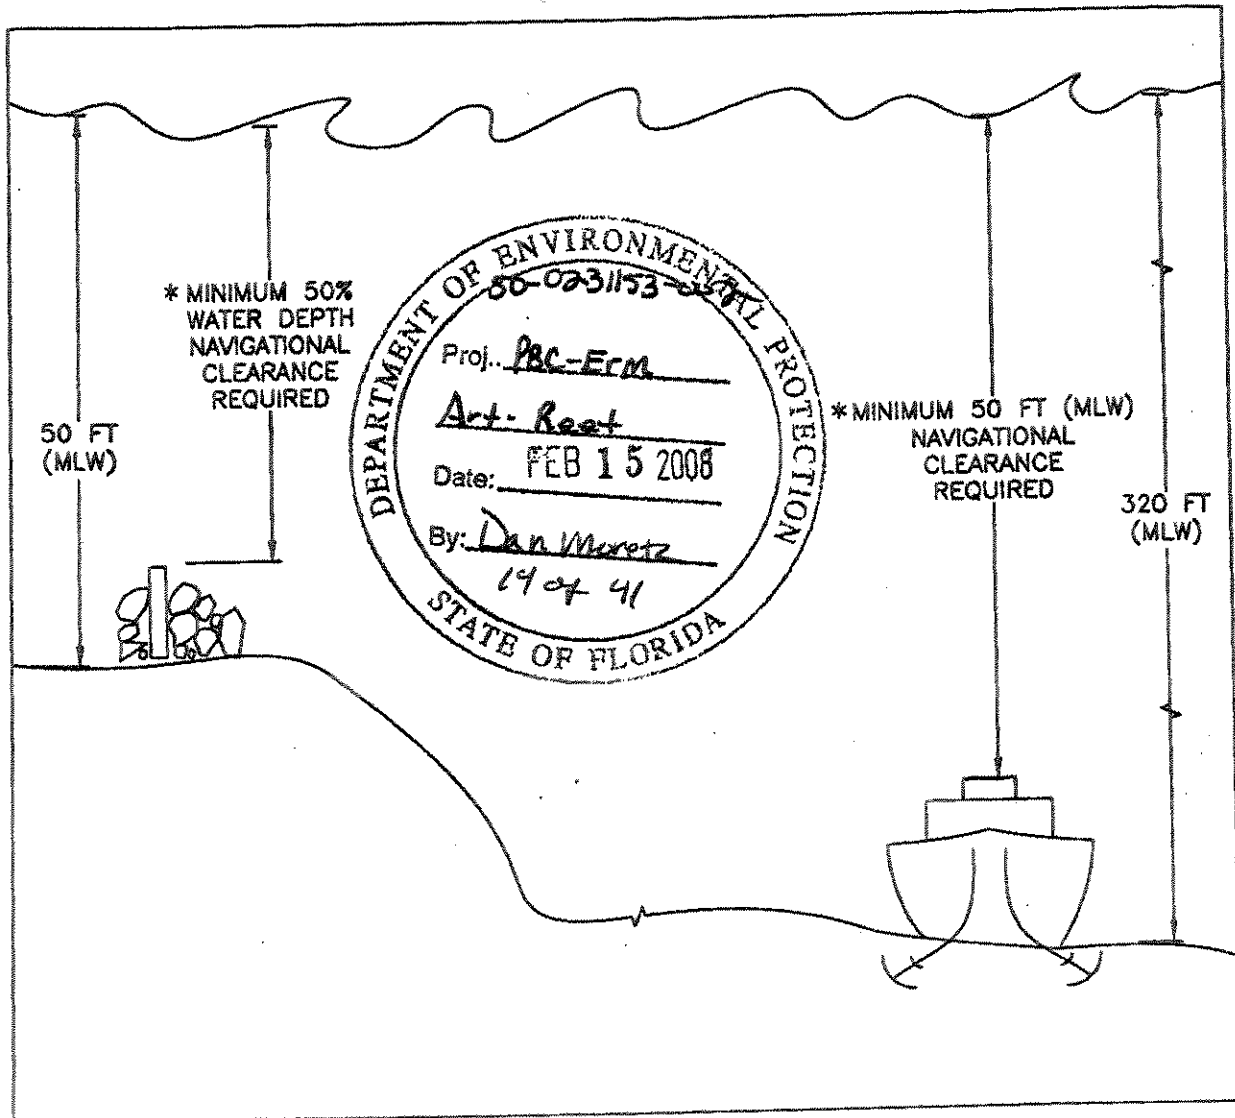 * MINIMUM 50%
WATER DEPTH
NAVIGATIONAL
CLEARANCE
REQUIRED
50 FT
(MLW)
DEPARTMENT OF ENVIRONMENTAL PROTECTION
50-0231153-
Proj.. PBC-Erm
Art. Reef
Date: FEB 15 2008
By: Dan Moretz
19 of 41
STATE OF FLORIDA
* MINIMUM 50 FT (MLW)
NAVIGATIONAL
CLEARANCE
REQUIRED
320 FT
(MLW)